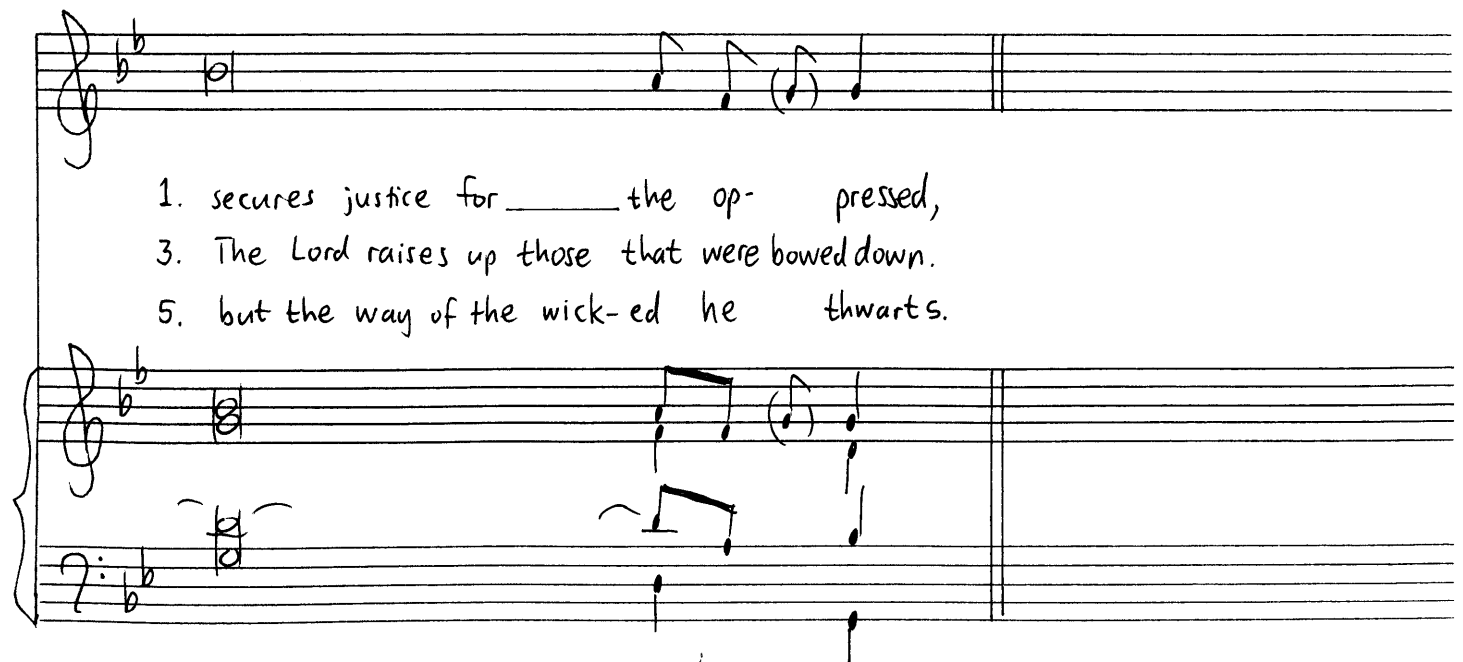 1. secures justice for______the op- pressed,
3. The Lord raises up those that were bowed down.
5. but the way of the wick-ed he thwarts.